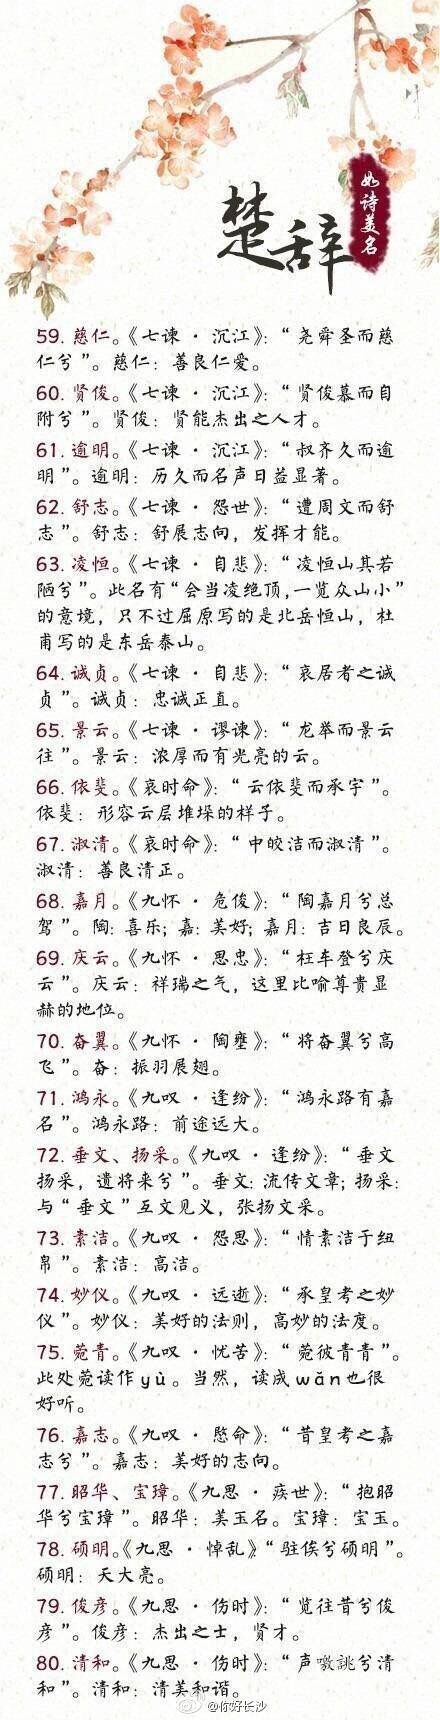 楚辞
如诗美名
59. 慈仁。《七谏 · 沉江》：“尧舜圣而慈
仁兮”。慈仁：善良仁爱。
60. 贤俊。《七谏 · 沉江》：“贤俊慕而自
附兮”。贤俊：贤能杰出之人才。
61. 逾明。《七谏 · 沉江》：“叔齐久而逾
明”。逾明：历久而名声日益显著。
62. 舒志。《七谏 · 怨世》：“遭周文而舒
志”。舒志：舒展志向，发挥才能。
63. 凌恒。《七谏 · 自悲》：“凌恒山其若
陋兮”。此名有“会当凌绝顶，一览众山小”
的意境，只不过屈原写的是北岳恒山，杜
甫写的是东岳泰山。
64. 诚贞。《七谏 · 自悲》：“哀居者之诚
贞”。诚贞：忠诚正直。
65. 景云。《七谏 · 谬谏》：“龙举而景云
往”。景云：浓厚而有光亮的云。
66. 依斐。《哀时命》：“云依斐而承宇”。
依斐：形容云层堆垛的样子。
67. 淑清。《哀时命》：“中皎洁而淑清”。
淑清：善良清正。
68. 嘉月。《九怀 · 危俊》：“陶嘉月兮总
驾”。陶：喜乐；嘉：美好；嘉月：吉日良辰。
69. 庆云。《九怀 · 思忠》：“枉车登兮庆
云”。庆云：祥瑞之气，这里比喻尊贵显
赫的地位。
70. 奋翼。《九怀 · 陶壅》：“将奋翼兮高
飞”。奋：振羽展翅。
71. 鸿永。《九叹 · 逢纷》：“鸿永路有嘉
名”。鸿永路：前途远大。
72. 垂文、扬采。《九叹 · 逢纷》：“垂文
扬采，遗将来兮”。垂文：流传文章；扬采：
与“垂文”互文见义，张扬文采。
73. 素洁。《九叹 · 怨思》：“情素洁于纽
帛”。素洁：高洁。
74. 妙仪。《九叹 · 远逝》：“承皇考之妙
仪”。妙仪：美好的法则，高妙的法度。
75. 菀青。《九叹 · 忧苦》：“菀彼青青”。
此处菀读作 yù 。当然，读成 wǎn 也很
好听。
76. 嘉志。《九叹 · 愍命》：“昔皇考之嘉
志兮”。嘉志：美好的志向。
77. 昭华、宝璋。《九思 · 疾世》：“抱昭
华兮宝璋”。昭华：美玉名。宝璋：宝玉。
78. 硕明。《九思 · 悼乱》：“驻俟兮硕明”。
硕明：天大亮。
79. 俊彦。《九思 · 伤时》：“览往昔兮俊
彦”。俊彦：杰出之士，贤才。
80. 清和。《九思 · 伤时》：“声噭誂兮清
和”。清和：清美和谐。
@你好长沙